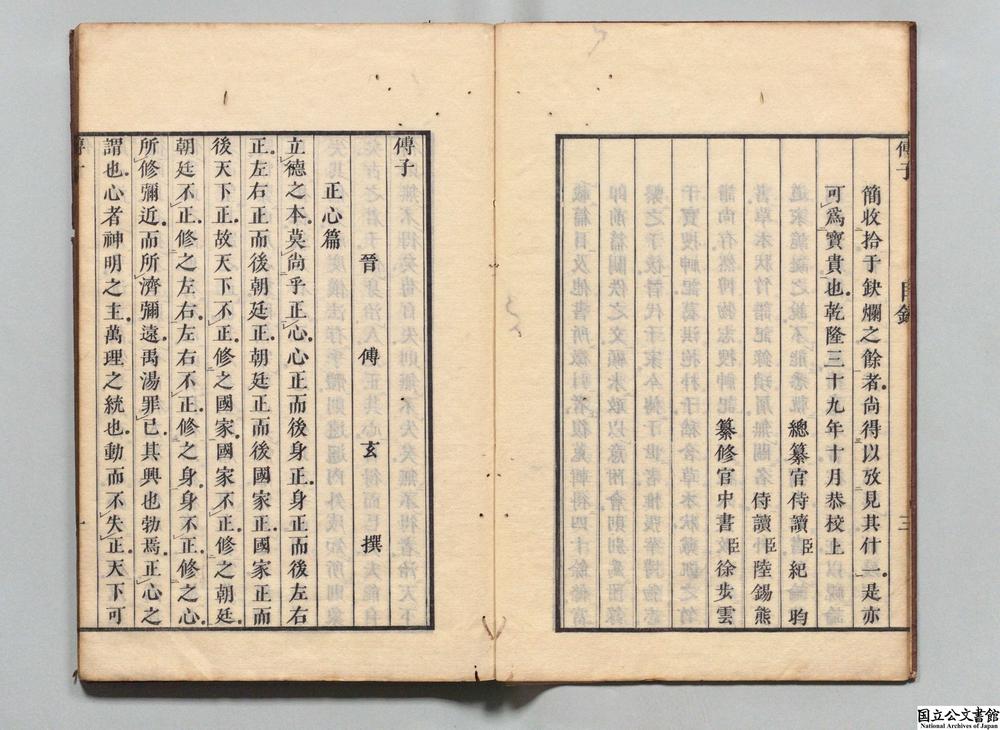 傅子
目錄
三
簡收拾于鈌爛之餘者尚得以攷見其什一是亦
可爲寶貴也乾隆三十九年十月恭校上
總纂官侍讀臣紀昀
侍讀臣陸錫熊
纂修官中書臣徐步雲
傅子
晉傅玄撰
正心篇
立德之本莫尚乎正心心正而後身正身正而後左右
正左右正而後朝廷正朝廷正而後國家正國家正而
後天下正故天下不正修之國家國家不正修之朝廷
朝廷不正修之左右左右不正修之身身不正修之心
所修彌近而所濟彌遠禹湯罪己其興也勃焉正心之
謂也心者神明之主萬理之統也動而不失正天下可
国立公文書館
National Archives of Japan